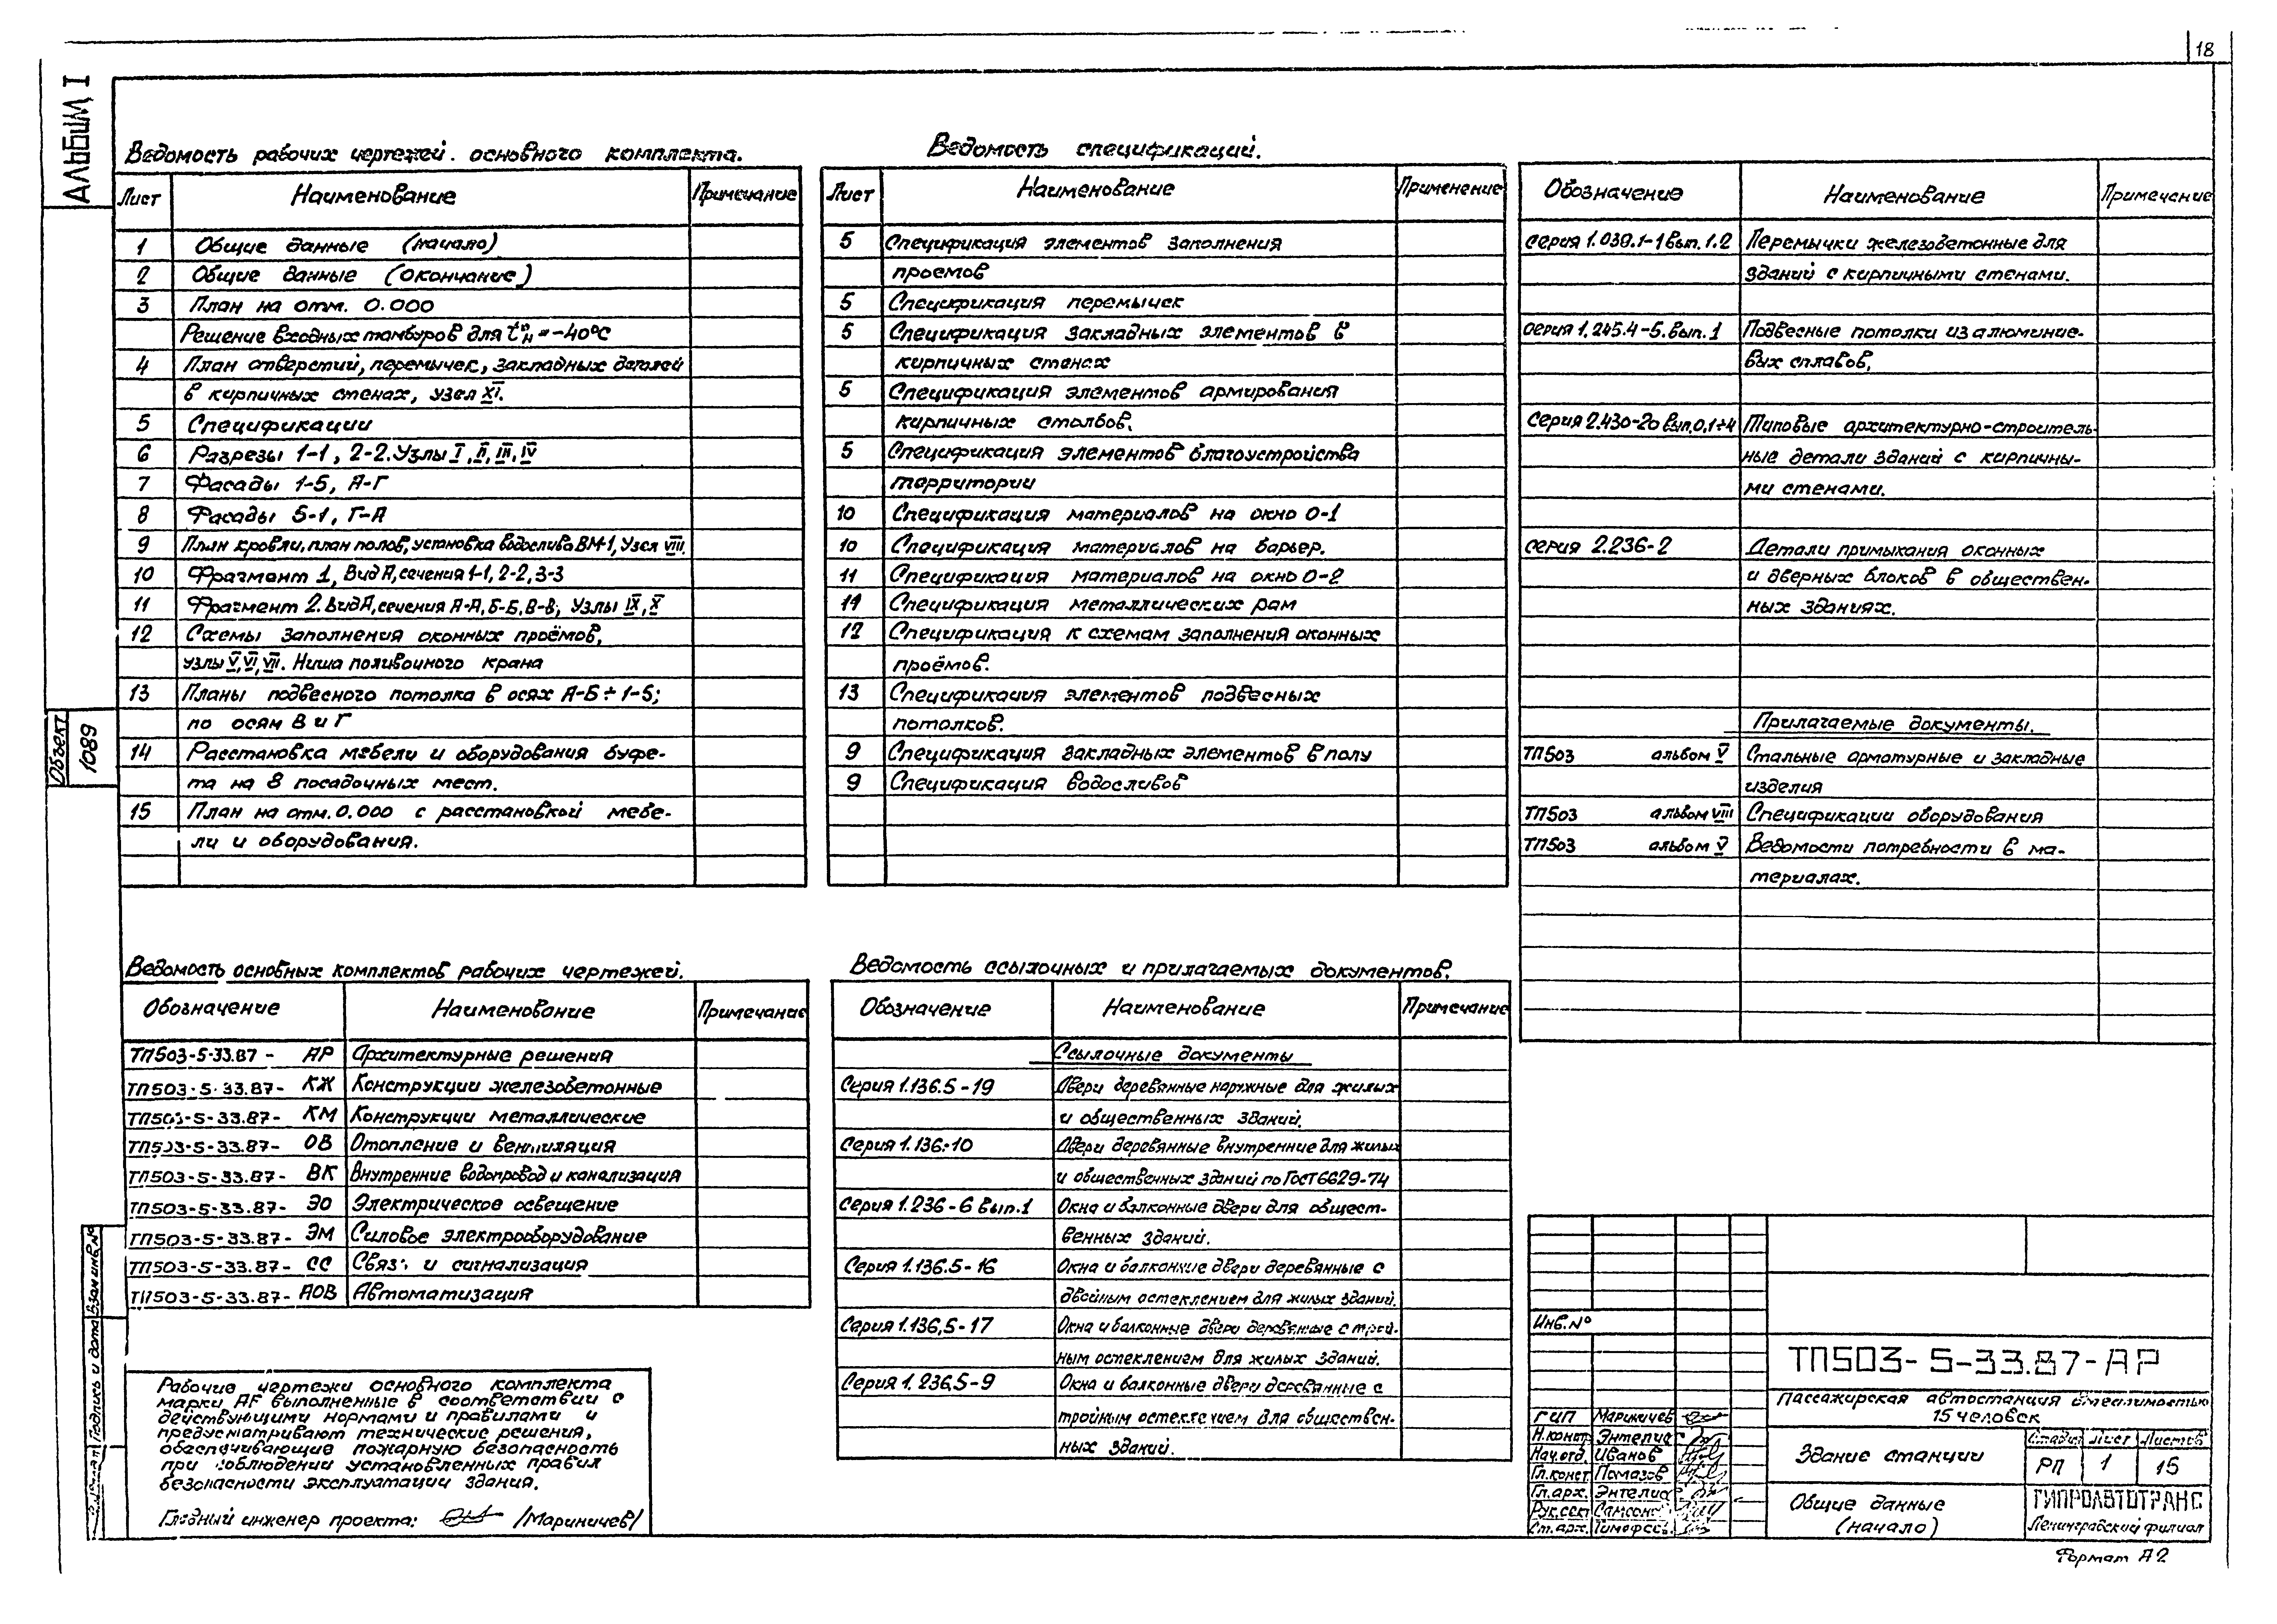 18
АЛЬБОМ I
Ведомость рабочих чертежей основного комплекта.
Лист Наименование Примечание
1 Общие данные (начало)
2 Общие данные (окончание)
3 План на отм. 0.000
Решение входных тамбуров для tн = -40°С
4 План отверстий, перемычек, закладных деталей
в кирпичных стенах, узел XI.
5 Спецификации
6 Разрезы 1-1, 2-2. Узлы I, II, III, IV
7 Фасады 1-5, А-Г
8 Фасады 5-1, Г-А
9 План кровли, план полов, установка водослива ВМ-1, Узел VIII.
10 Фрагмент 1, Вид А, сечения 1-1, 2-2, 3-3
11 Фрагмент 2. Вид А, сечения А-А, Б-Б, В-В, Узлы IX, X
12 Схемы заполнения оконных проёмов,
узлы V, VI, VII. Ниша поливочного крана
13 Планы подвесного потолка в осях А-Б÷1-5;
по осям В и Г
14 Расстановка мебели и оборудования буфе-
та на 8 посадочных мест.
15 План на отм. 0.000 с расстановкой мебе-
ли и оборудования.
Ведомость спецификаций.
Лист Наименование Применение
5 Спецификация элементов заполнения
проемов
5 Спецификация перемычек
5 Спецификация закладных элементов в
кирпичных стенах
5 Спецификация элементов армирования
кирпичных столбов.
5 Спецификация элементов благоустройства
территории
10 Спецификация материалов на окно О-1
10 Спецификация материалов на барьер.
11 Спецификация материалов на окно О-2
11 Спецификация металлических рам
12 Спецификация к схемам заполнения оконных
проёмов.
13 Спецификация элементов подвесных
потолков.
9 Спецификация закладных элементов в полу
9 Спецификация водосливов
Обозначение Наименование Примечение
серия 1.038.1-1 вып. 1.2 Перемычки железобетонные для
зданий с кирпичными стенами.
серия 1.245.4-5. вып. 1 Подвесные потолки из алюминие-
вых сплавов,
Серия 2.430-20 вып. 0,1÷4 Типовые архитектурно-строитель-
ные детали зданий с кирпичны-
ми стенами.
серия 2.236-2 Детали примыкания оконных
и дверных блоков в обществен-
ных зданиях.
Прилагаемые документы.
ТП503 альбом V Стальные арматурные и закладные
изделия
ТП503 альбом VIII Спецификации оборудования
ТП503 альбом V Ведомости потребности в ма-
териалах.
Объект
1089
Ведомость основных комплектов рабочих чертежей.
Обозначение Наименование Примечание
ТП503-5-33.87- АР Архитектурные решения
ТП503-5-33.87- КЖ Конструкции железобетонные
ТП503-5-33.87- КМ Конструкции металлические
ТП503-5-33.87- ОВ Отопление и вентиляция
ТП503-5-33.87- ВК Внутренние водопровод и канализация
ТП503-5-33.87- ЭО Электрическое освещение
ТП503-5-33.87- ЭМ Силовое электрооборудование
ТП503-5-33.87- СС Связь и сигнализация
ТП503-5-33.87- АОВ Автоматизация
Ведомость ссылочных и прилагаемых документов.
Обозначение Наименование Примечание
Ссылочные документы
Серия 1.136.5-19 Двери деревянные наружные для жилых
и общественных зданий.
Серия 1.136-10 Двери деревянные внутренние для жилых
и общественных зданий по ГОСТ 6629-74
Серия 1.236-6 вып.1 Окна и балконные двери для общест-
венных зданий.
Серия 1.136.5-16 Окна и балконные двери деревянные с
двойным остеклением для жилых зданий.
Серия 1.136,5-17 Окна и балконные двери деревянные с трой-
ным остеклением для жилых зданий.
Серия 1.236.5-9 Окна и балконные двери деревянные с
тройным остеклением для обществен-
ных зданий.
Рабочие чертежи основного комплекта
марки АР выполненные в соответствии с
действующими нормами и правилами и
предусматривают технические решения,
обеспечивающие пожарную безопасность
при соблюдении установленных правил
безопасности эксплуатации здания.
Главный инженер проекта: /Мариничев/
Подпись и дата Взам инв. №
Инв. №
ТП503-5-33.87-АР
Пассажирская автостанция вместимостью
15 человек
ГИП Мариничев
Н.конт. Энтелис
Нач.отд. Иванов
Гл.конст Помазов
Гл.арх. Энтелис
Рук.сект
Ст.арх.
Здание станции
Стадия Лист Листов
РП 1 15
Общие данные
(начало)
ГИПРОАВТОТРАНС
Ленинградский филиал
Формат А2